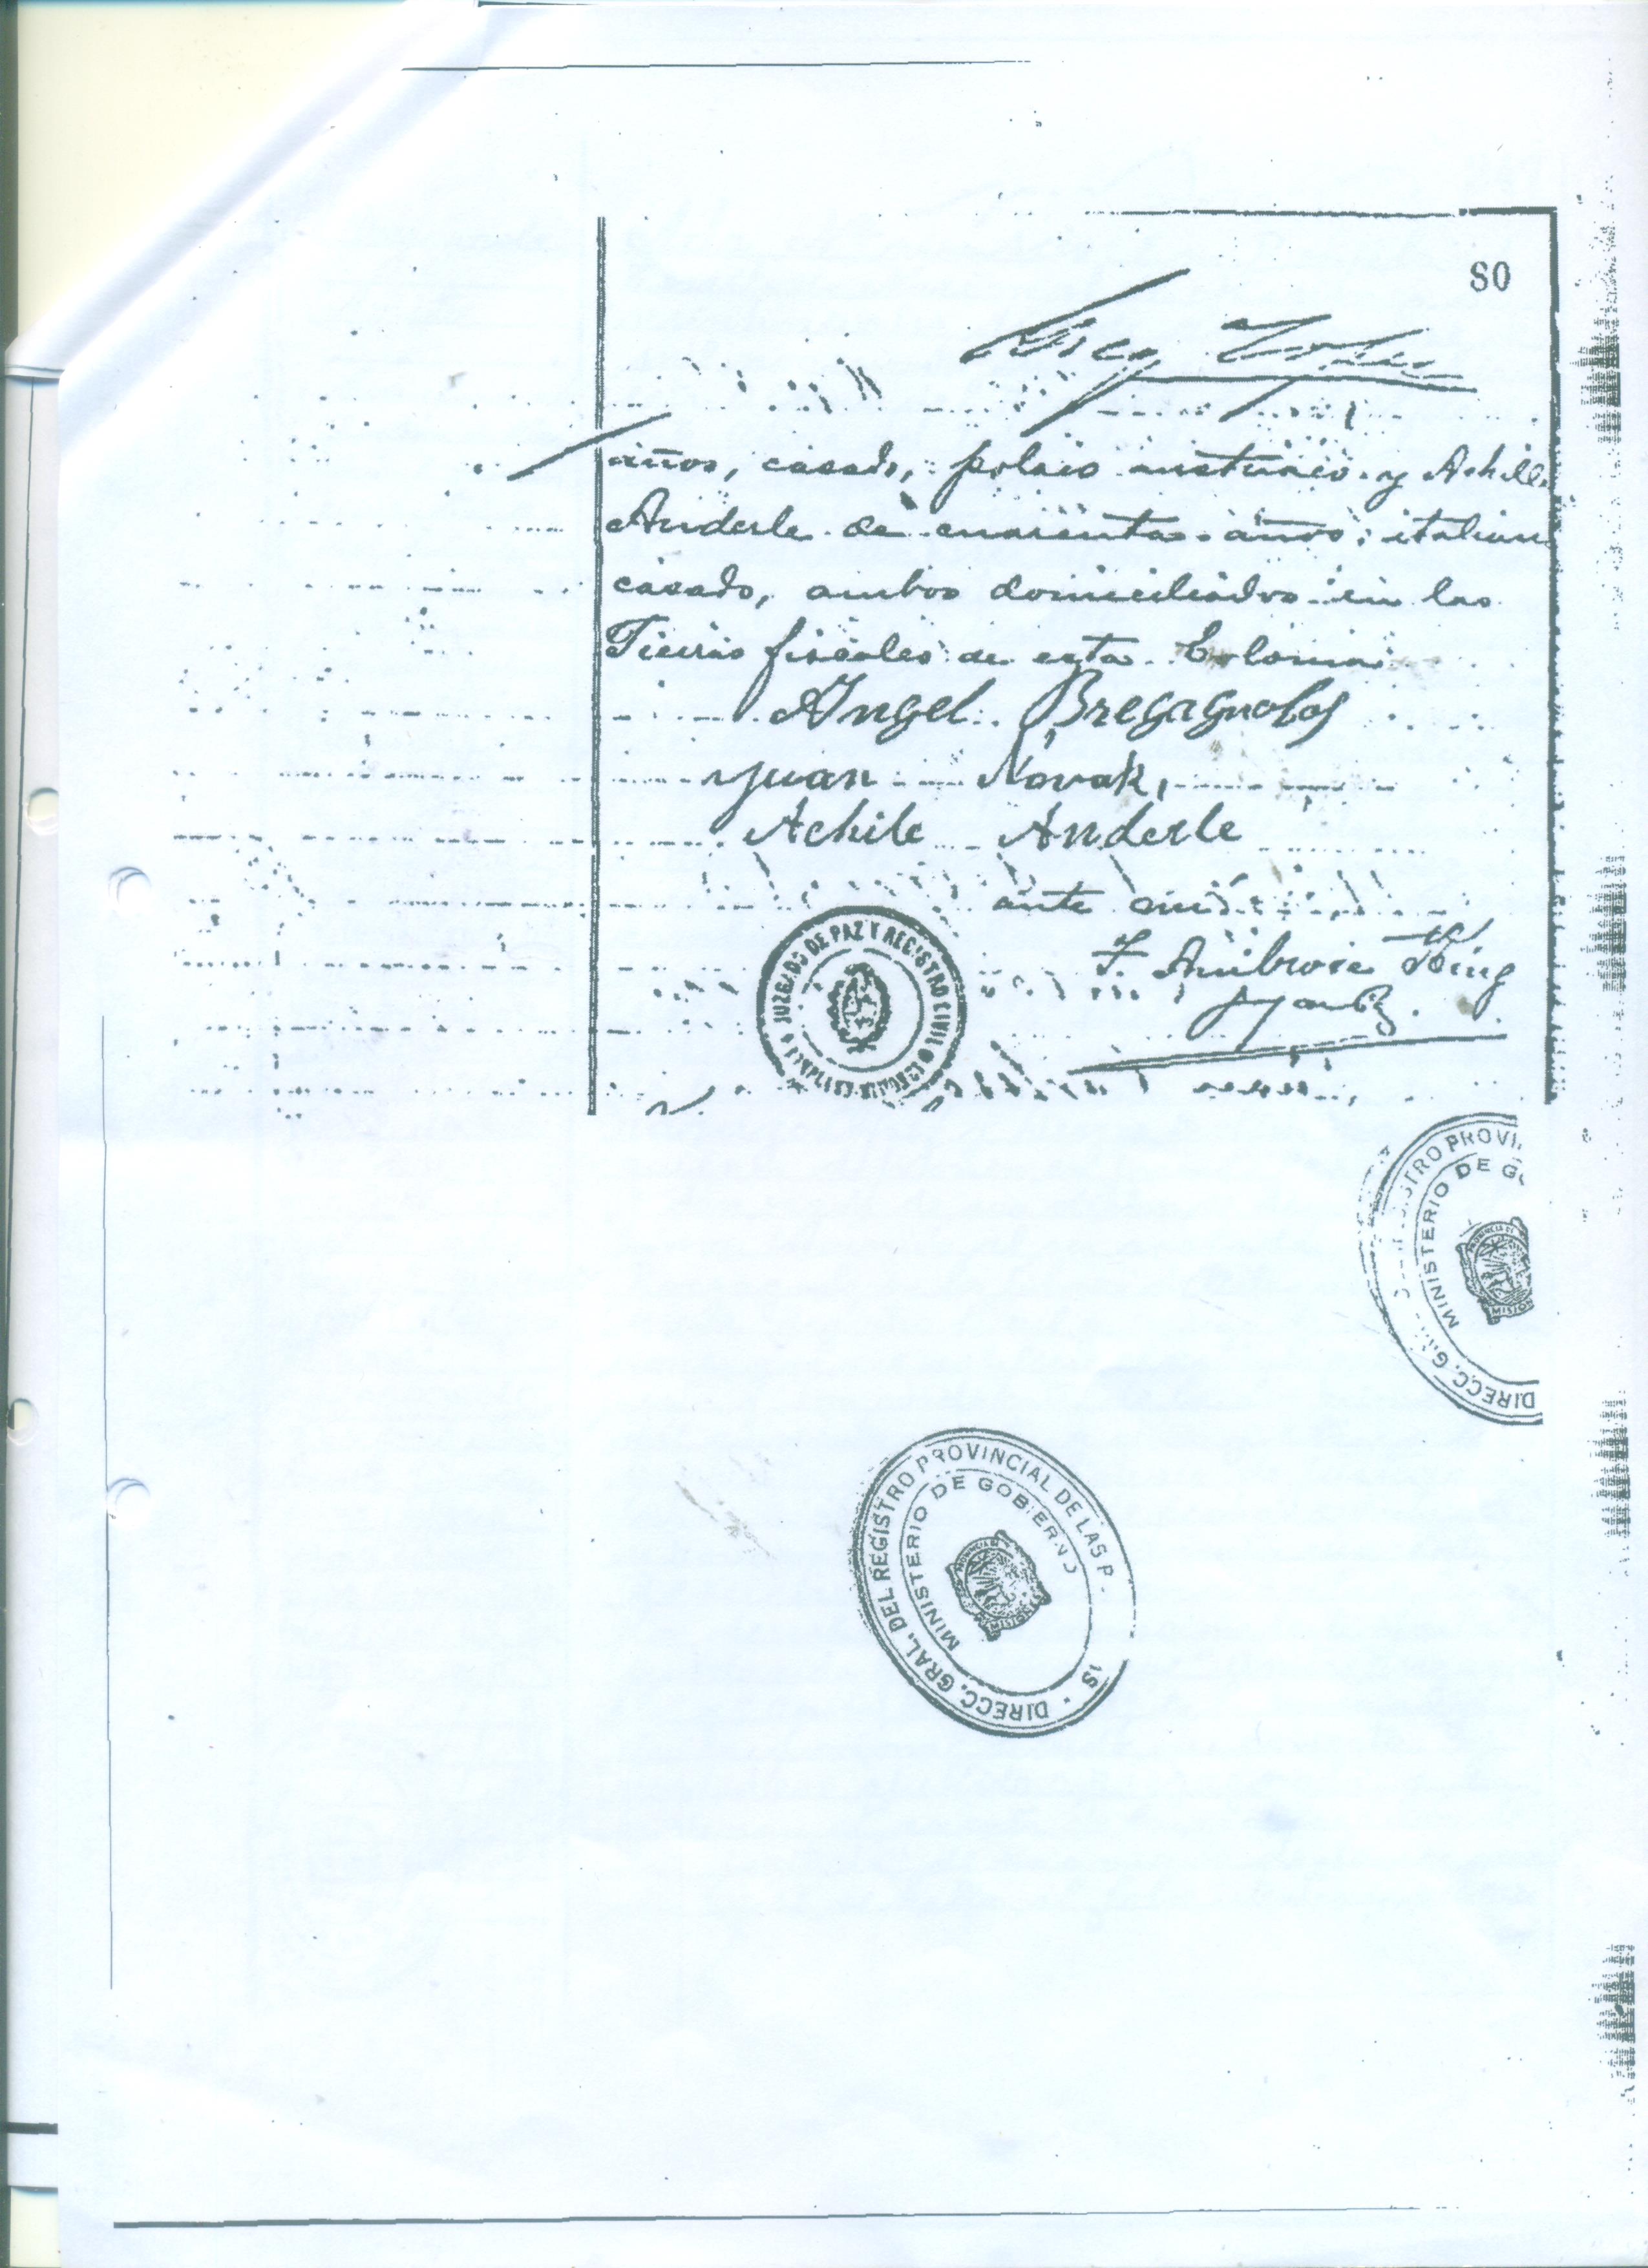 80
años, casado, polaco austriaco y Achile
Anderle de cuarenta años, italiano
casado, ambos domiciliados en las
Tierras fiscales de esta Colonia
Angel Bregagnolos
Juan Novak,
Achile Anderle
ante mi
F. Ambrose King
JUZGADOS DE PAZ Y REGISTRO CIVIL
DIRECC. G
STRO PROVI
MINISTERIO DE G
PROVINCIA DE
MISION
DIRECC. GRAL. DEL REGISTRO PROVINCIAL DE LAS P
IS
MINISTERIO DE GOBIERNO
PROVINCIA DE